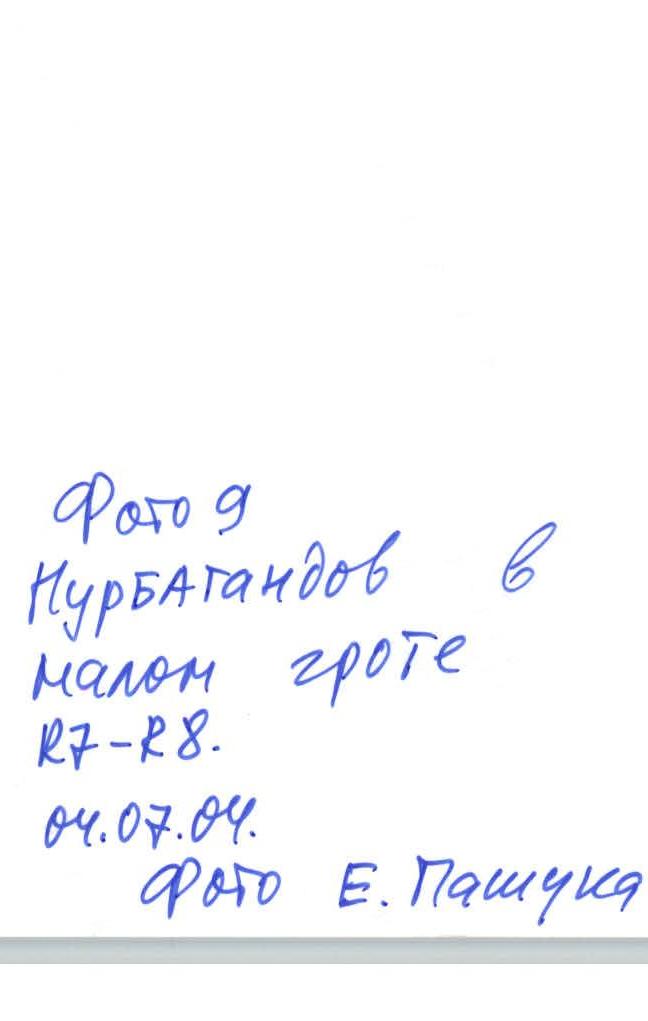 Фото 9
НурБАгандов в
малом гроте
R7-R8.
04.07.04.
Фото Е. Пашука